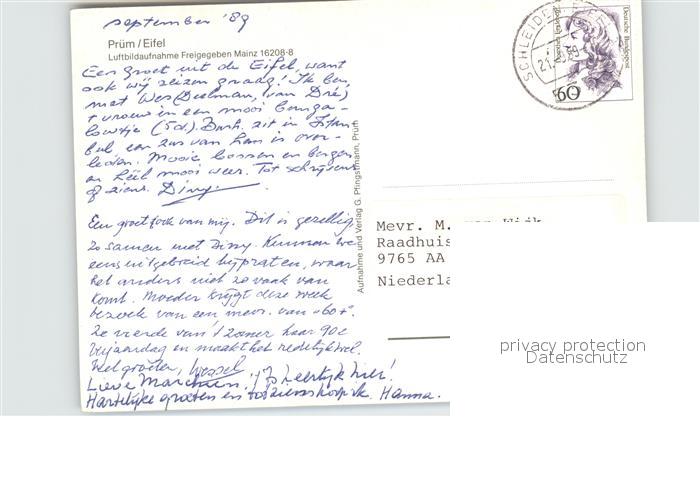 september '89
Prüm / Eifel
Luftbildaufnahme Freigegeben Mainz 16208-8
Een groet uit de Eifel, want
ook wij reizen graag! Ik ben
met Wes (Deelman, van Dré)
+ vrouw in een mooi bunga-
lowtje (5d.). Barh. zit in Istan-
bul een zus van hem is over-
leden. Mooie bossen en bergen
en héél mooi weer. Tot schrijvens
of ziens. Diny.
Een groet ook van mij. Dit is gezellig,
zo samen met Diny. Kunnen we
eens uitgebreid bijpraten, waar
het anders niet zo vaak van
komt. Moeder krijgt deze week
bezoek van een mevr. van "60+".
Ze vierde van 't zomer haar 90e
verjaardag en maakt het redelijk wel.
Veel groeten, Wessel
Lieve 't Is heerlijk hier!
Hartelijke groeten en tot ziens Hanna.
Aufnahme und Verlag G. Pfingstmann, Prüm
SCHLEIDEN
21.
Deutsche Bundespost
60
Mevr. M. van Wijk
Raadhuis
9765 AA
Niederla
privacy protection
Datenschutz